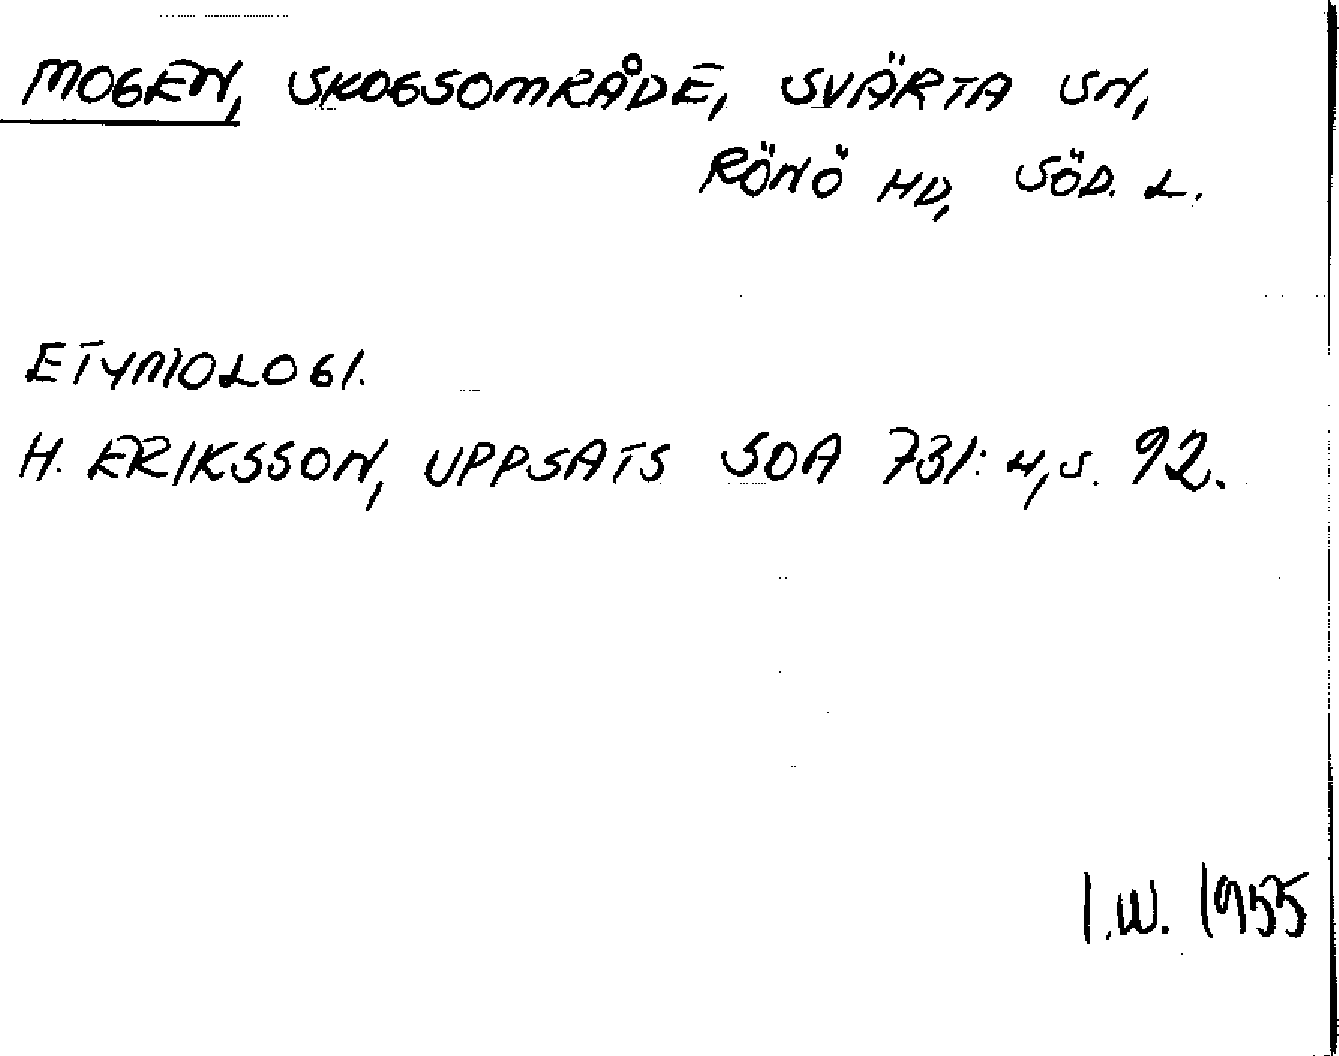 MOGEN, SKOGSOMRÅDE, SVÄRTA SN,
RÖNÖ HD, SÖD. L.
ETYMOLOGI.
H. ERIKSSON, UPPSATS SOA 731: 4, S. 92.
I.W. 1955